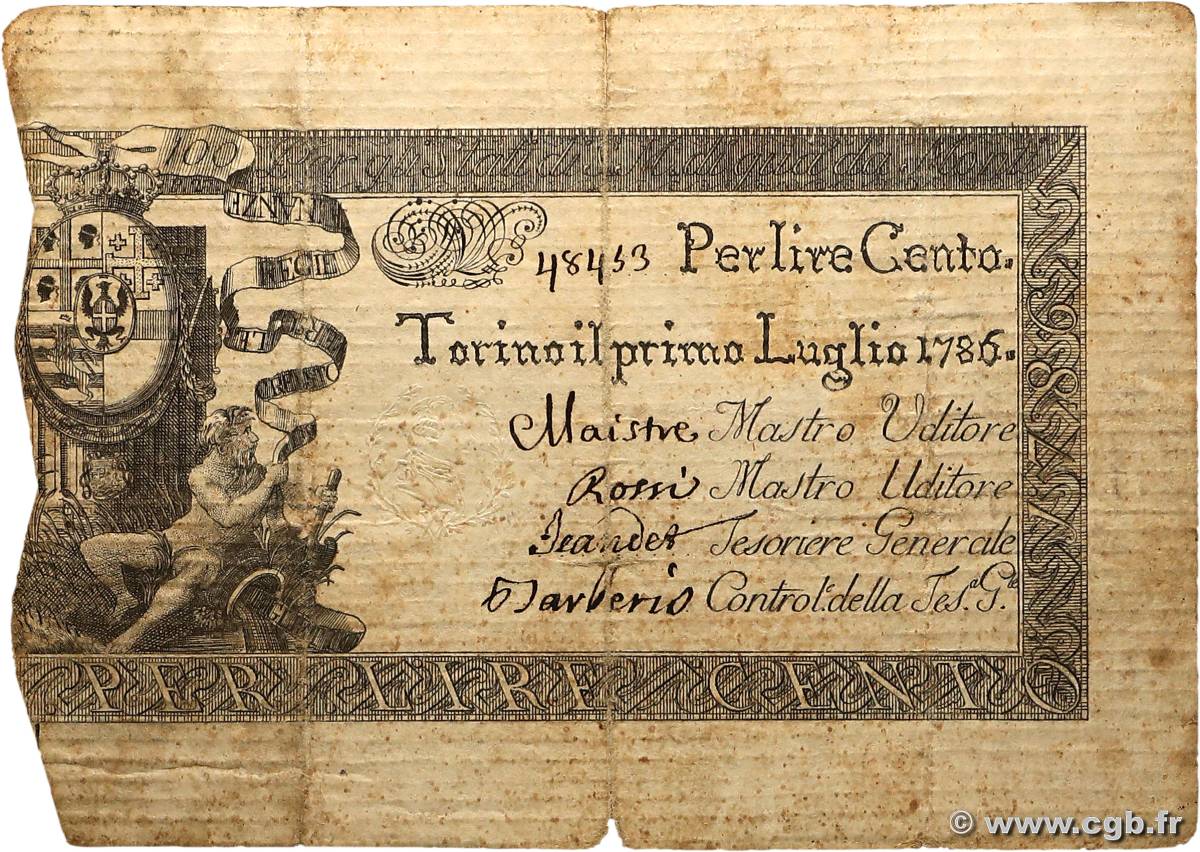 100 Per gli Stati di S.M. di quà da
FINANZE
REGIE
48453 Per lire Cento.
Torino il primo Luglio 1786.
Maistre Mastro Uditore
Rossi Mastro Uditore
Jeandet Tesoriere Generale
Barberis Control.e della Tes.a G.le
1786
PER LIRE CENTO
© www.cgb.fr